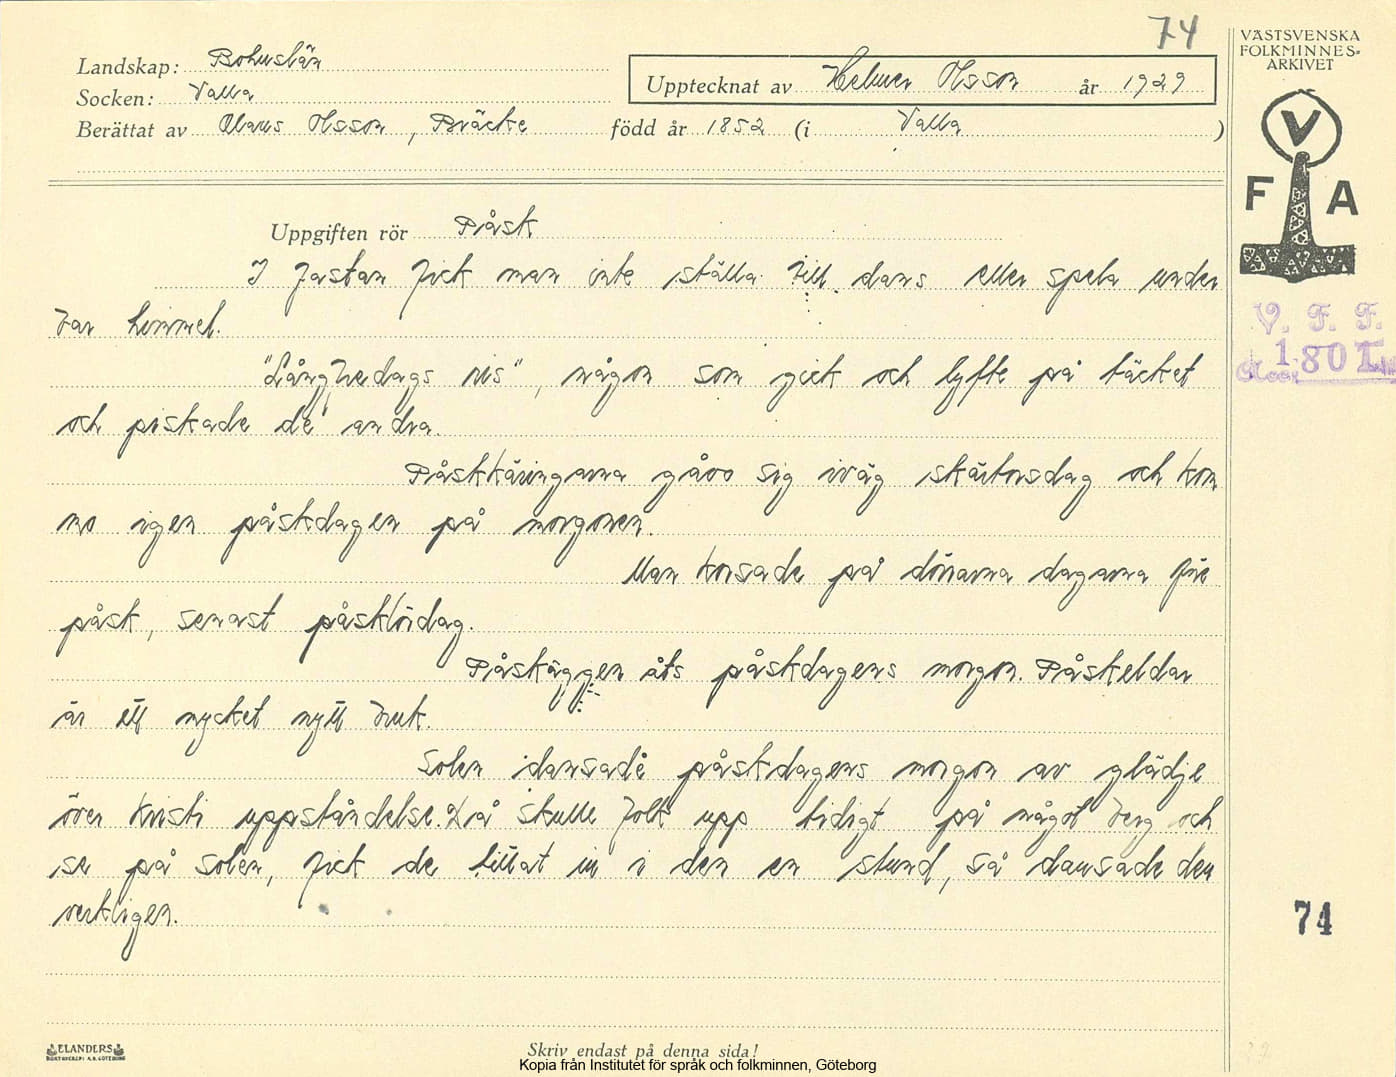 74
VÄSTSVENSKA
FOLKMINNES-
ARKIVET
Landskap: Bohuslän
Upptecknat av Helmer Olsson år 1929
Socken: Valla
Berättat av Olaus Olsson, Bräcke född år 1852 (i Valla)
V
F A
Uppgiften rör Påsk
I fastan fick man inte ställa till dans eller spela under
bar himmel.
V. F. F.
1801
"Långfredags ris", någon som gick och lyfte på täcket
och piskade de andra.
Påskkäringarna gåvo sig iväg skärtorsdag och kom
mo igen påskdagen på morgonen.
Man korsade på dörrarna dagarna före
påsk, senast påsklördag.
Påskäggen åts påskdagens morgon. Påskeldar
är ett mycket nytt bruk.
Solen dansade påskdagens morgon av glädje
över Kristi uppståndelse. Då skulle folk upp tidigt på något berg och
se på solen, fick de tittat in i den en stund, så dansade den
verkligen.
74
ELANDERS
Skriv endast på denna sida!
Kopia från Institutet för språk och folkminnen, Göteborg